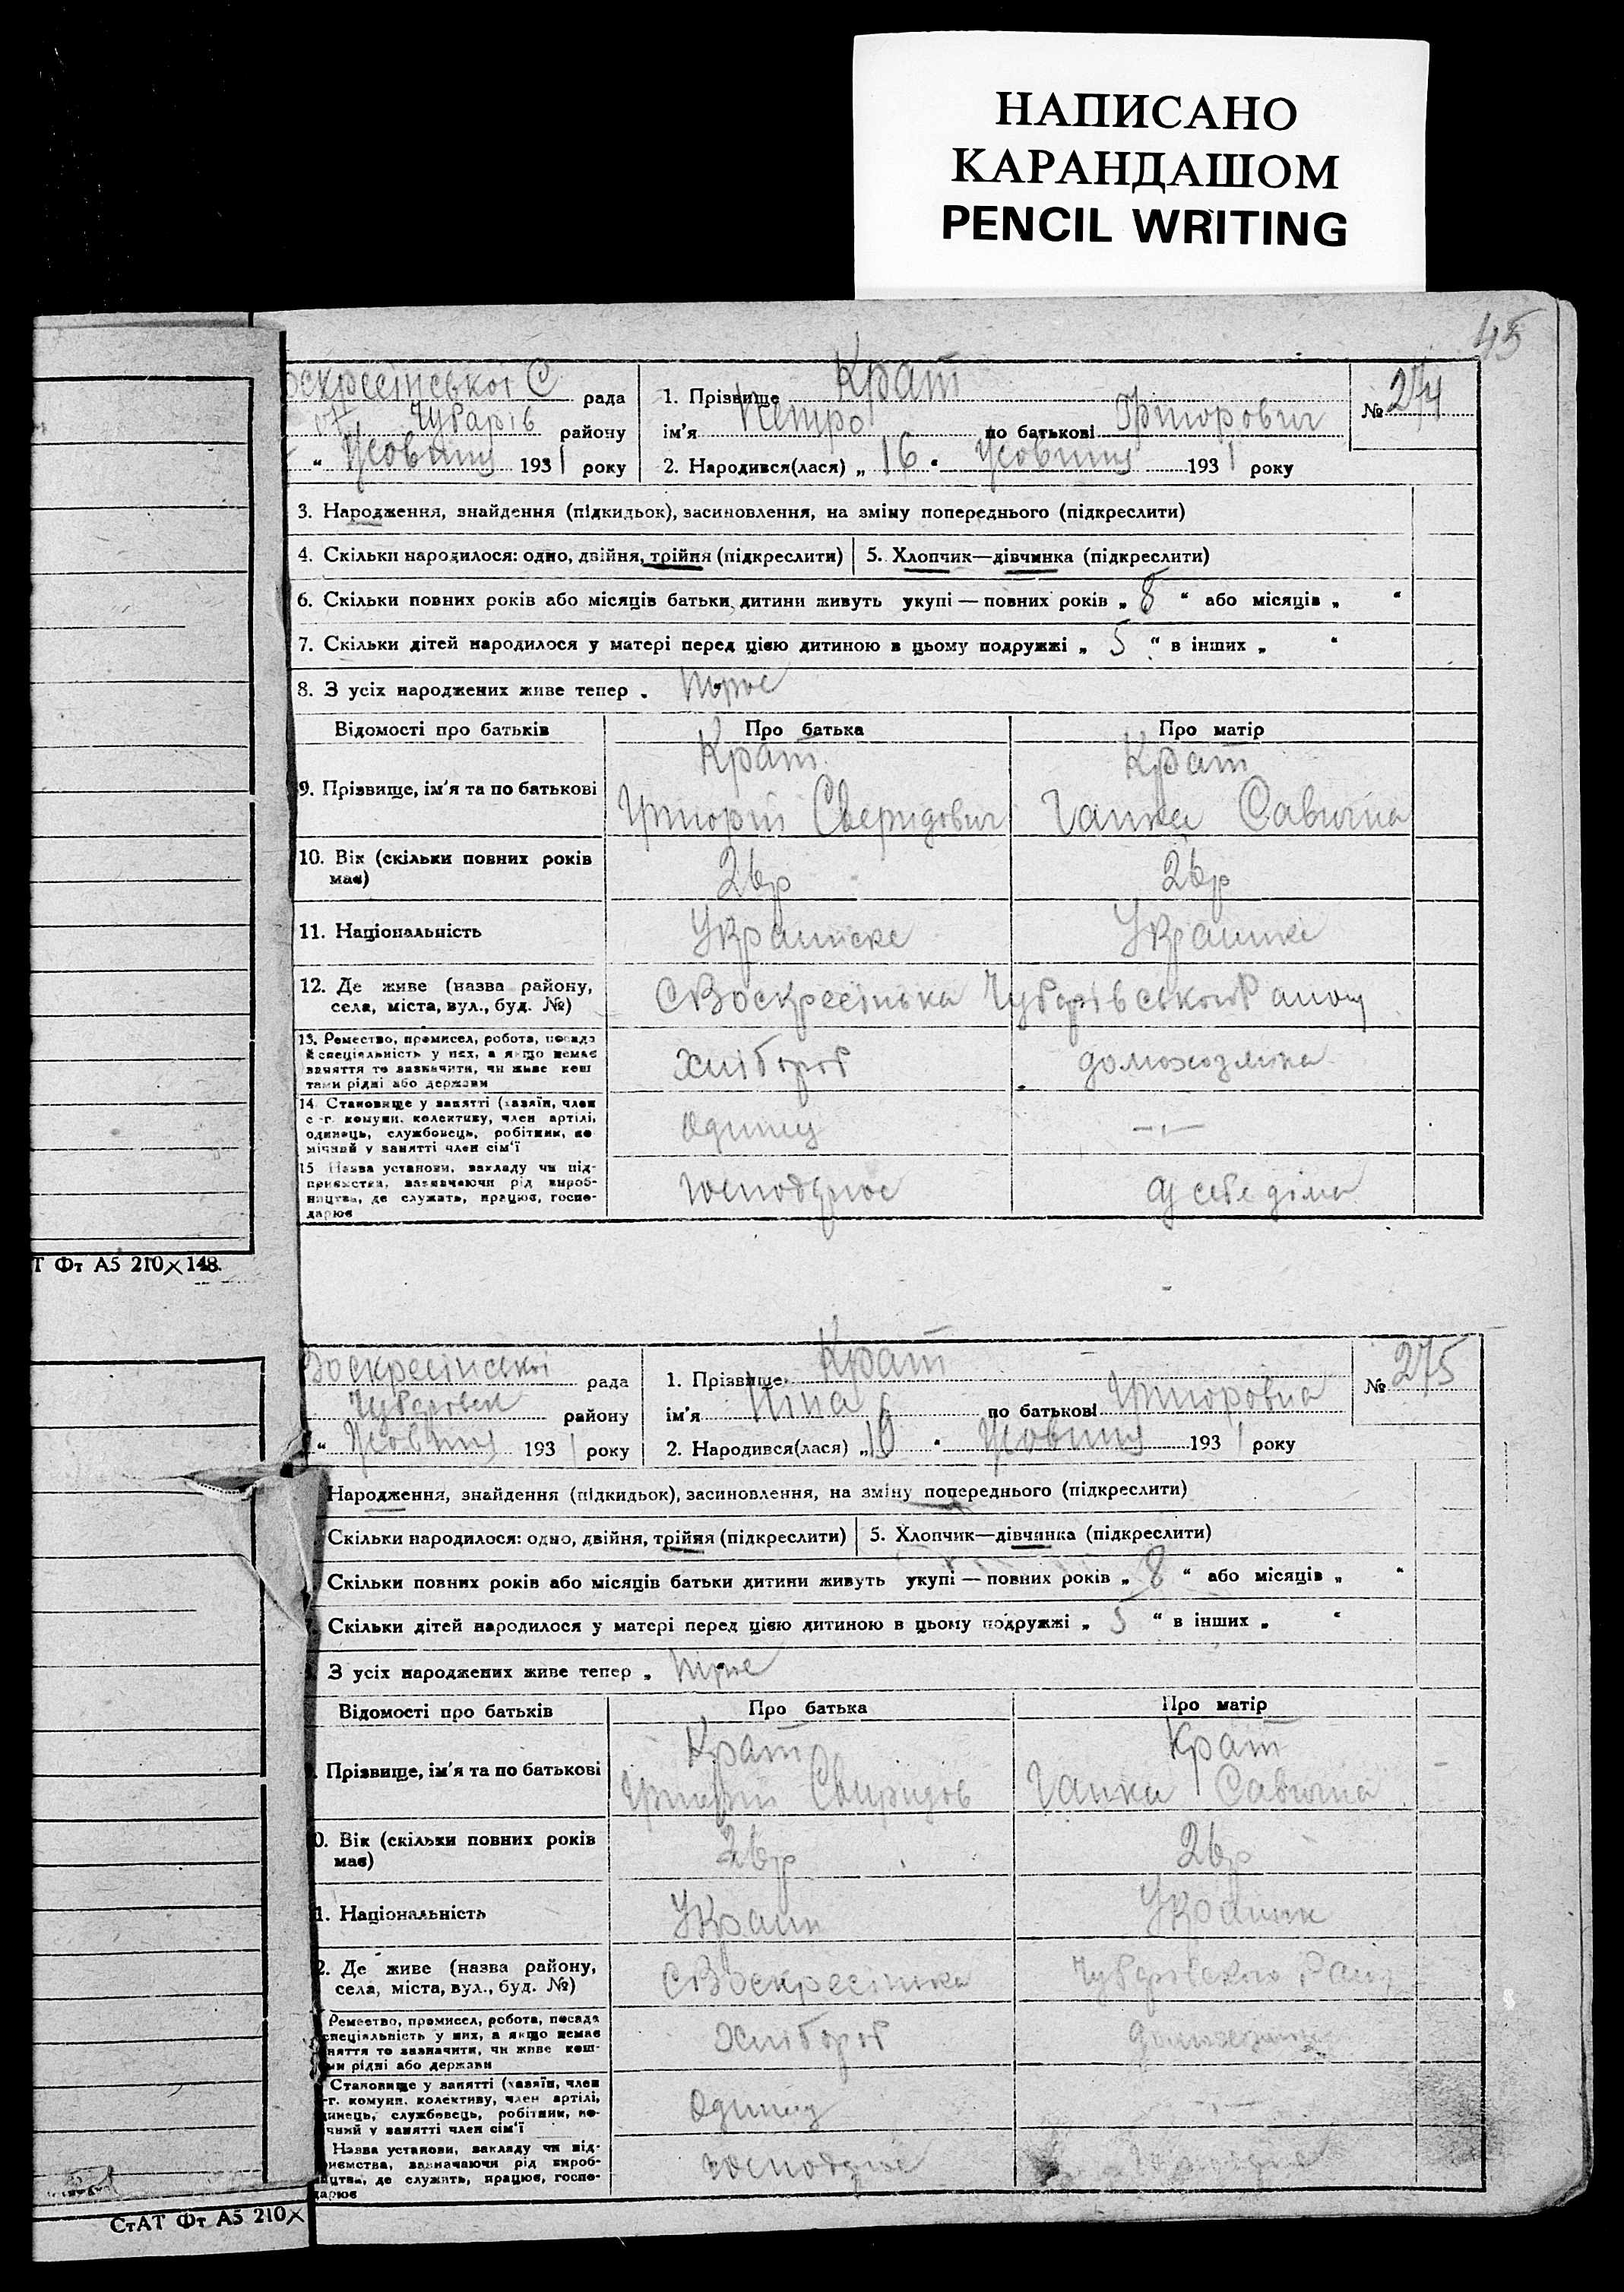 НАПИСАНО
КАРАНДАШОМ
PENCIL WRITING
45
оскресінської С рада
Чубарів району
" Жовтня 1931 року
1. Прізвище Крат
ім'я Петро по батькові Григорович
№ 274
2. Народився(лася) „ 16 " Жовтня 1931 року
3. Народження, знайдення (підкидьок), засиновлення, на зміну попереднього (підкреслити)
4. Скільки народилося: одно, двійня, трійня (підкреслити) 5. Хлопчик—дівчинка (підкреслити)
6. Скільки повних років або місяців батьки дитини живуть укупі — повних років „ 8 " або місяців „ "
7. Скільки дітей народилося у матері перед цією дитиною в цьому подружжі „ 5 " в інших „ "
8. З усіх народжених живе тепер „ троє
Відомості про батьків Про батька Про матір
9. Прізвище, ім'я та по батькові
Крат Крат
Григорій Сверидович Ганна Савична
10. Вік (скільки повних років має)
26р 26р
11. Національність
Українка
12. Де живе (назва району, села, міста, вул., буд. №)
С Воскресінька Чубарівського Району
13. Ремество, промисел, робота, посада й спеціяльність у них, а якщо немає заняття то зазначити, чи живе коштами рідні або держави
Хлібороб домохозяйка
14. Становище у занятті (хазяїн, член с.-г. комуни, колективу, член артілі, одинець, службовець, робітник, помічний у занятті член сім'ї
Одинец —„—
15 Назва установи, закладу чи підприємства, зазначаючи рід виробництва, де служить, працює, господарює
у себе дома
Т Фт А5 210×148.
Воскресінської рада
району
" Жовтня 1931 року
1. Прізвище Крат
ім'я Ніна по батькові Григоровна
№ 275
2. Народився(лася) „ 16 " Жовтня 1931 року
Народження, знайдення (підкидьок), засиновлення, на зміну попереднього (підкреслити)
Скільки народилося: одно, двійня, трійня (підкреслити) 5. Хлопчик—дівчинка (підкреслити)
Скільки повних років або місяців батьки дитини живуть укупі — повних років „ 8 " або місяців „ "
Скільки дітей народилося у матері перед цією дитиною в цьому подружжі „ 5 " в інших „ "
З усіх народжених живе тепер „ троє
Відомості про батьків Про батька Про матір
. Прізвище, ім'я та по батькові
Крат Крат
Григорій Свиридов Ганна Савична
0. Вік (скільки повних років має)
26р 26р
1. Національність
Україн
2. Де живе (назва району, села, міста, вул., буд. №)
С Воскресінька
Ремество, промисел, робота, посада спеціяльність у них, а якщо немає няття то зазначити, чи живе кош- ми рідні або держави
Хлібороб
Становище у занятті (хазяїн, член -г. комуни, колективу, член артілі, динець, службовець, робітник, по- чний у занятті член сім'ї
Одинец
Назва установи, закладу чи під- риємства, зазначаючи рід вироб- ицтва, де служить, працює, госпо- дарює
СтАТ Фт А5 210×